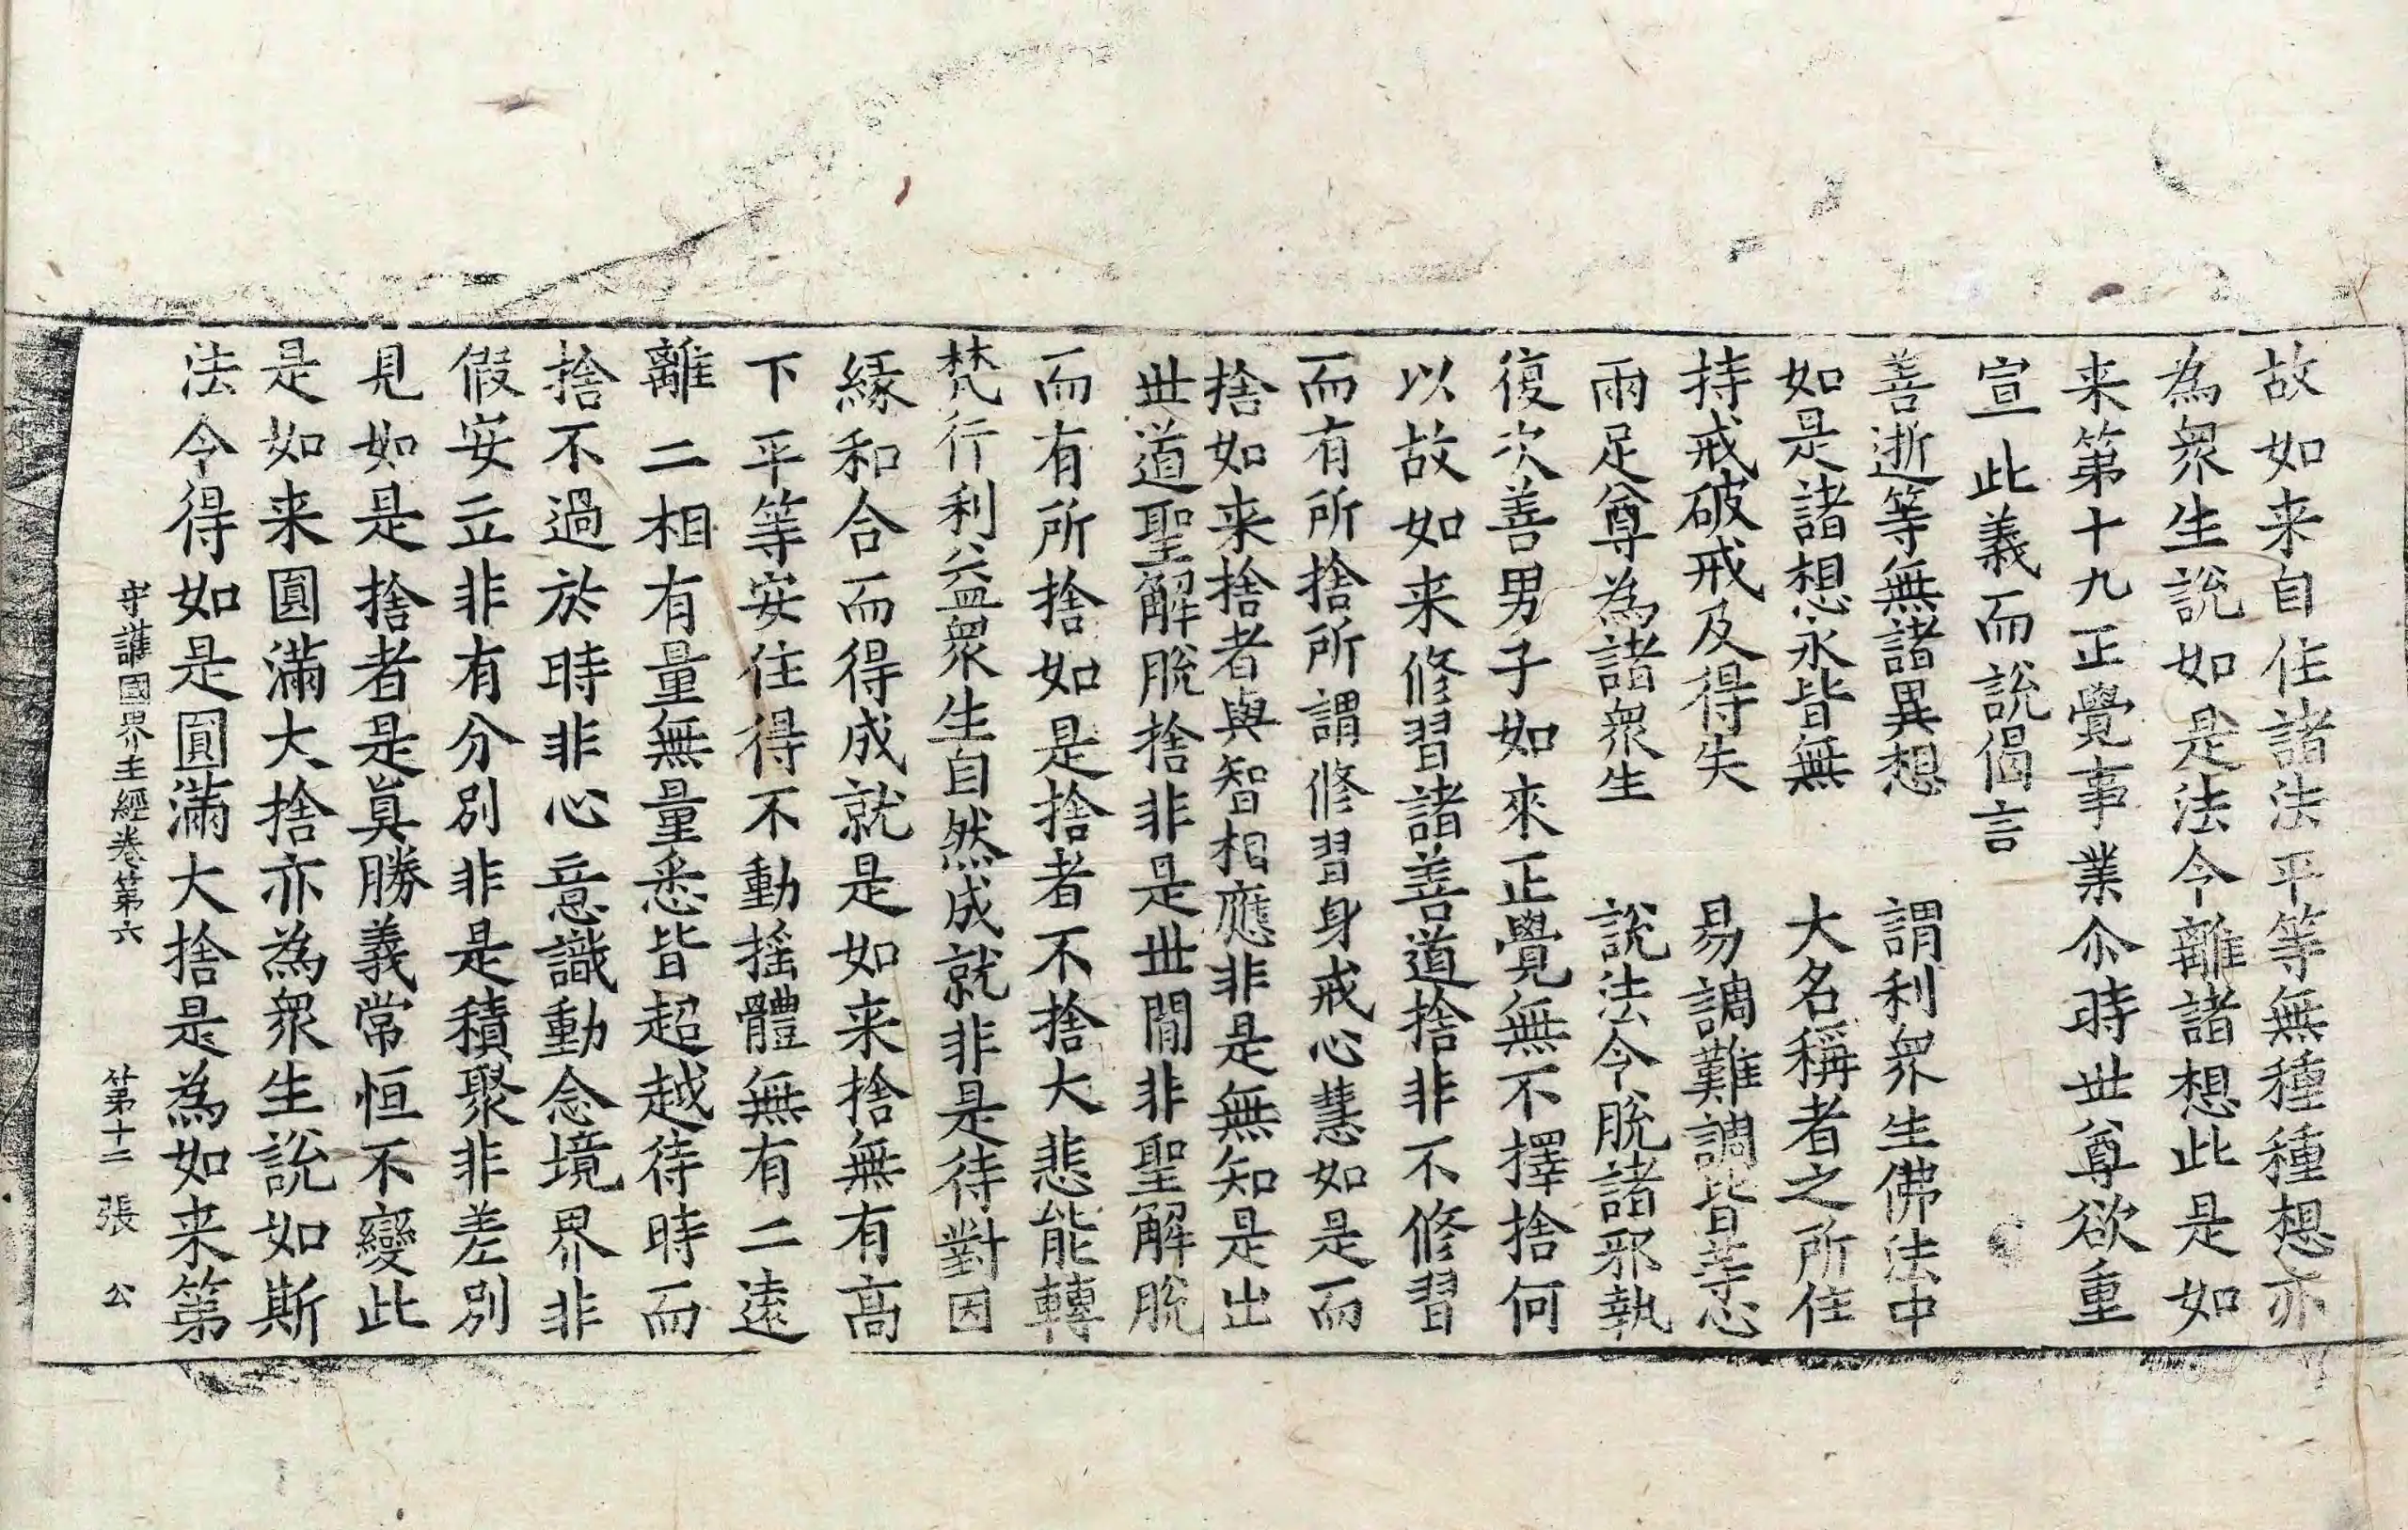 故如来自住諸法平等無種種想亦
為衆生說如是法令離諸想此是如
来第十九正覺事業尒時世尊欲重
宣此義而說偈言
善逝等無諸異想　謂利衆生佛法中
如是諸想永皆無　大名稱者之所住
持戒破戒及得失　易調難調皆等心
兩足尊為諸衆生　說法令脫諸邪執
復次善男子如來正覺無不擇捨何
以故如来修習諸善道捨非不修習
而有所捨所謂修習身戒心慧如是而
捨如来捨者與智相應非是無知是出
世道聖解脫捨非是世間非聖解脫
而有所捨如是捨者不捨大悲能轉
梵行利益衆生自然成就非是待對因
緣和合而得成就是如来捨無有高
下平等安住得不動搖體無有二遠
離二相有量無量悉皆超越待時而
捨不過於時非心意識動念境界非
假安立非有分別非是積聚非差別
見如是捨者是眞勝義常恒不變此
是如来圓滿大捨亦為衆生說如斯
法令得如是圓滿大捨是為如来第
守護國界主經卷第六　第十二張　公